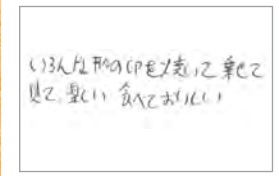 いろんな形の を焼いて 乗せて
見て 楽しい 食べておいしい